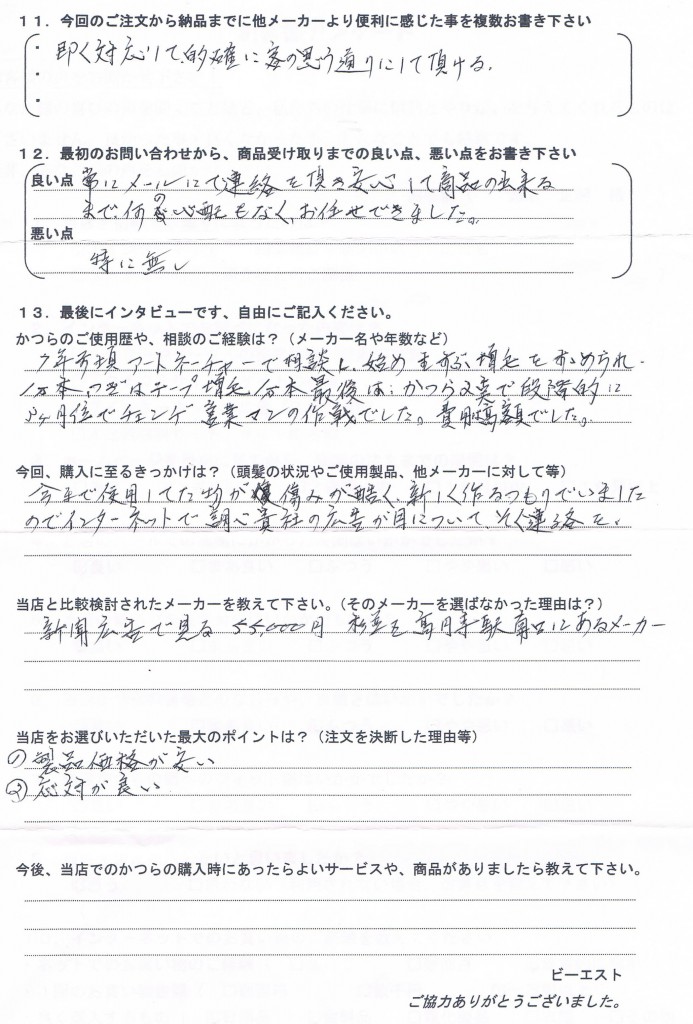 １１．今回のご注文から納品までに他メーカーより便利に感じた事を複数お書き下さい
・即く対応して、的確に客の思う通りにして頂ける。
・
・
１２．最初のお問い合わせから、商品受け取りまでの良い点、悪い点をお書き下さい
良い点 常にメールにて連絡を頂き安心して商品の出来る
まで何の心配もなく、お任せできました。
悪い点
特に無し
１３．最後にインタビューです、自由にご記入ください。
かつらのご使用歴や、相談のご経験は？（メーカー名や年数など）
7年前頃アートネーチャーで相談し、始めまずは、増毛をすすめられ、
つぎはテープ増毛 最後は、かつら で段階的に
ヶ月位でチェンヂ 営業マンの作戦でした。費用高額でした。
今回、購入に至るきっかけは？（頭髪の状況やご使用製品、他メーカーに対して等）
今まで使用してた物が傷みが酷く、新しく作るつもりでいました
のでインターネットで調べ貴社の広告が目について、すぐ連絡を。
当店と比較検討されたメーカーを教えて下さい。（そのメーカーを選ばなかった理由は？）
新聞広告で見る 55,000円 高円寺駅南口にあるメーカー
当店をお選びいただいた最大のポイントは？（注文を決断した理由等）
① 製品価格が安い
② 応対が良い
今後、当店でのかつらの購入時にあったらよいサービスや、商品がありましたら教えて下さい。
ビーエスト
ご協力ありがとうございました。